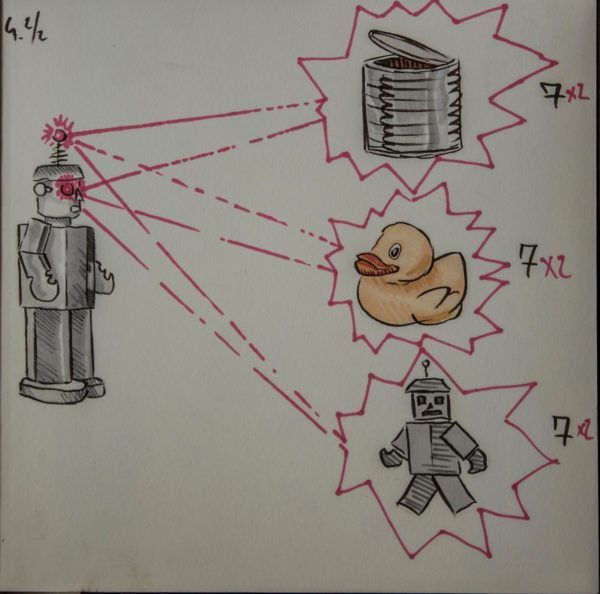 4. 2/2
7 x2
7 x2
7 x2